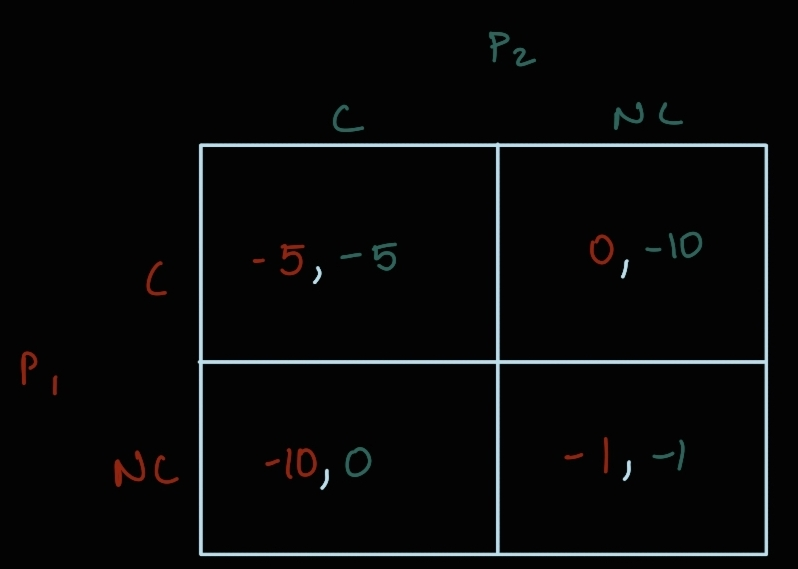 P2
C NC
C -5, -5 0, -10
P1
NC -10, 0 -1, -1